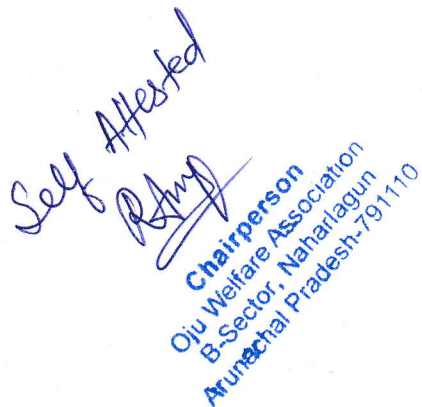 Self Attested
Chairperson
Oju Welfare Association
B-Sector, Naharlagun
Arunachal Pradesh-791110